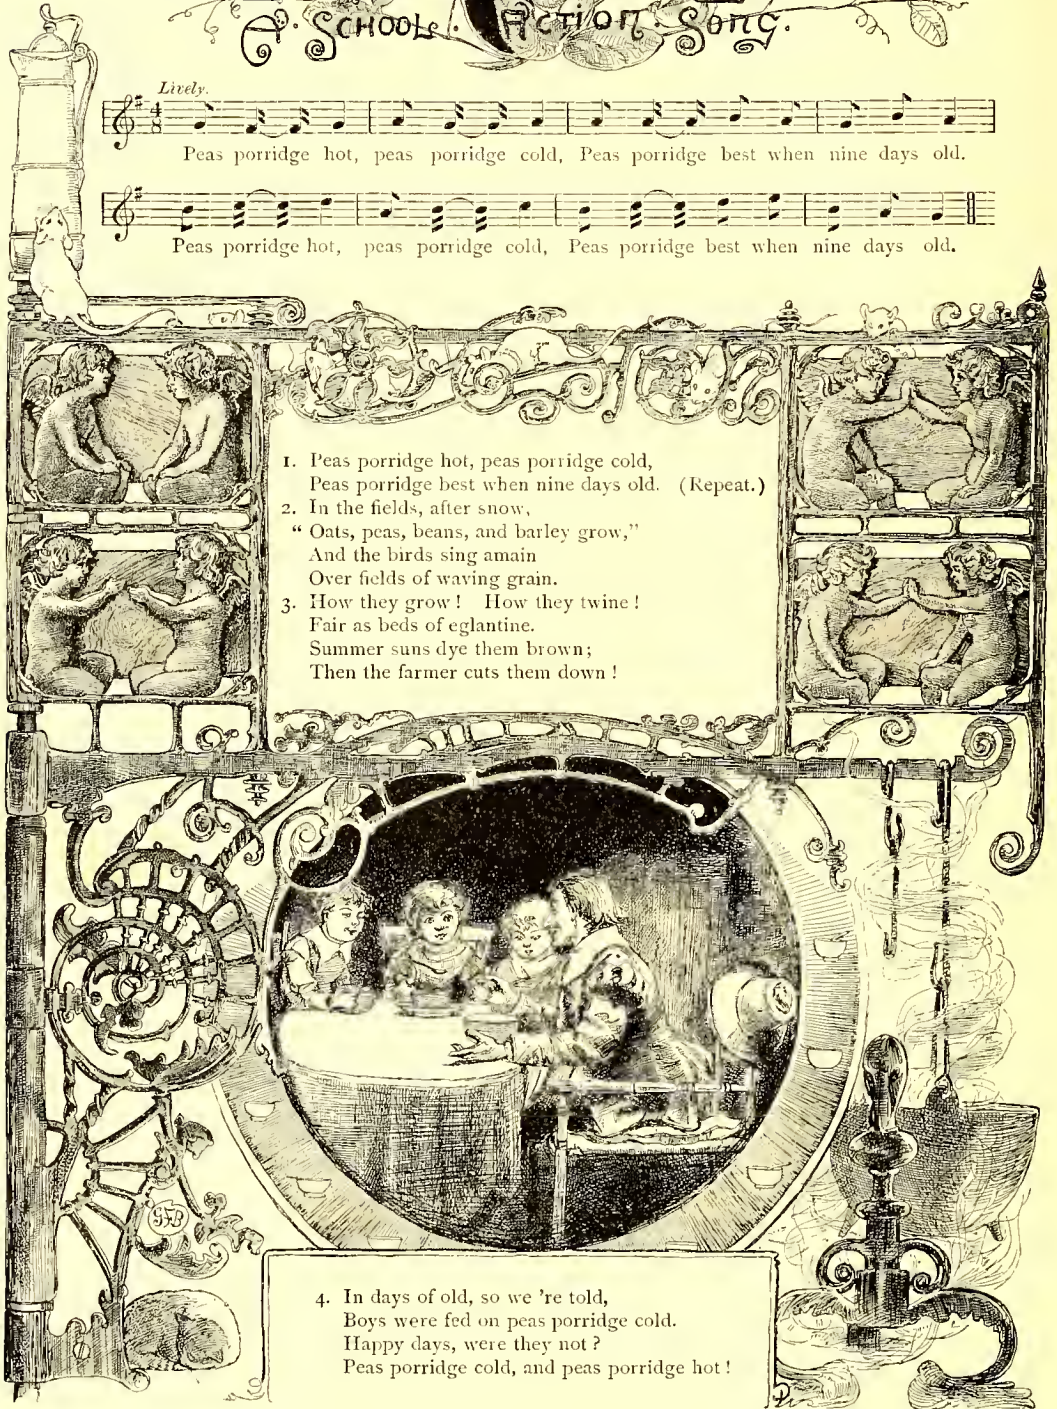 A · School · Action · Song.
Lively.
4
8
Peas porridge hot, peas porridge cold, Peas porridge best when nine days old.
Peas porridge hot, peas porridge cold, Peas porridge best when nine days old.
1. Peas porridge hot, peas porridge cold,
Peas porridge best when nine days old. (Repeat.)
2. In the fields, after snow,
“ Oats, peas, beans, and barley grow,”
And the birds sing amain
Over fields of waving grain.
3. How they grow ! How they twine !
Fair as beds of eglantine.
Summer suns dye them brown;
Then the farmer cuts them down !
GFB
4. In days of old, so we ’re told,
Boys were fed on peas porridge cold.
Happy days, were they not ?
Peas porridge cold, and peas porridge hot !